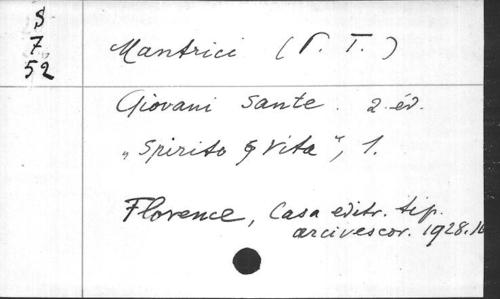 S
7
52
Mantrici (P. T.)
Giovani Sante. 2. éd.
„Spirito e Vita“, 1.
Florence, Casa editr. tip.
arcivescov. 1928.